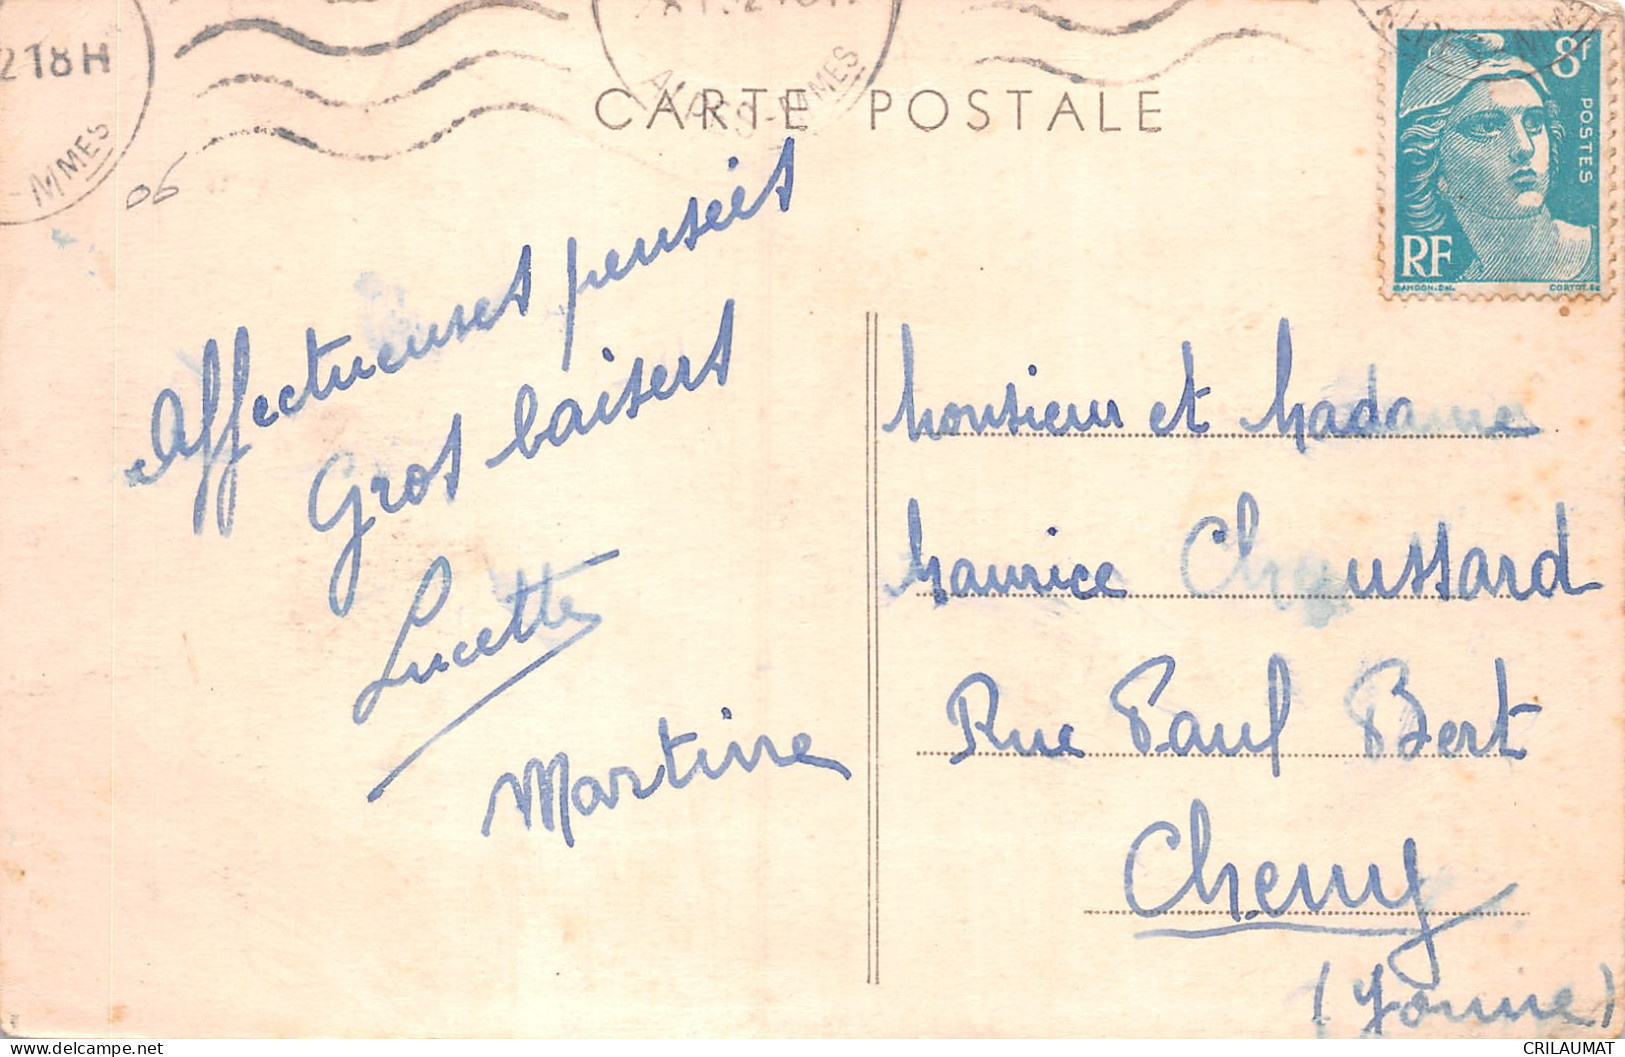 2 18H
MMES
06
CARTE POSTALE
8f
POSTES
RF
GANDON.DEL.
CORTOT.SC
Affectueuses pensées
Gros baisers
Lucette
Martine
Monsieur et Madame
Maurice Choussard
Rue Paul Bert
Cheny
(Yonne)
CRILAUMAT